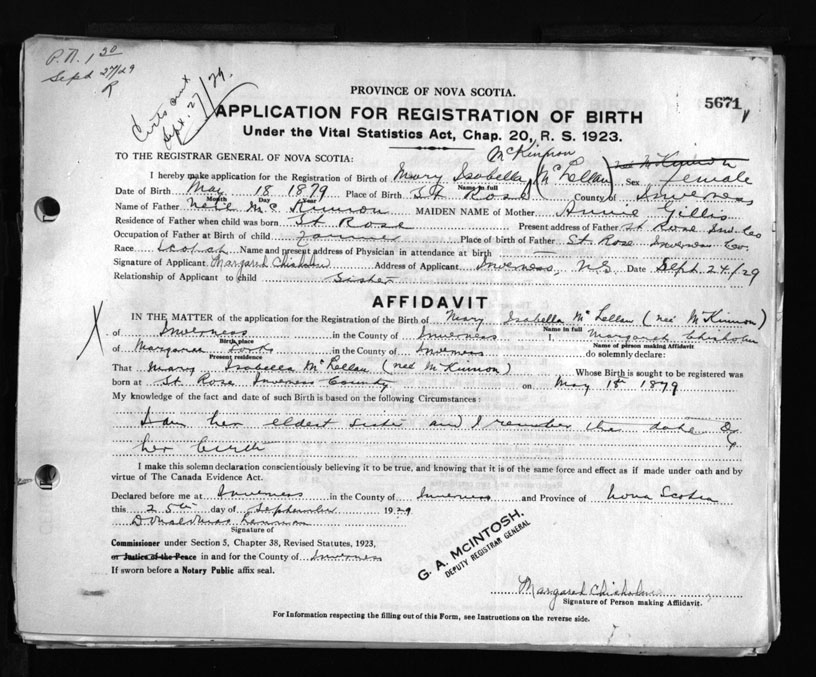 P.N. 1 20
Sept 27/29
R
Certs out
Sept. 27/29.
PROVINCE OF NOVA SCOTIA.
5671
APPLICATION FOR REGISTRATION OF BIRTH
Under the Vital Statistics Act, Chap. 20, R. S. 1923.
TO THE REGISTRAR GENERAL OF NOVA SCOTIA: McKinnon
I hereby make application for the Registration of Birth of Mary Isabella (McLellan) née McKinnon Sex female
Name in full
Date of Birth May 18 1879 Place of Birth St Rose County of Inverness
Month Day Year
Name of Father Neil McKinnon MAIDEN NAME of Mother Annie Gillis
Residence of Father when child was born St Rose Present address of Father St Rose Inv. Co
Occupation of Father at Birth of child Farmer Place of birth of Father St Rose Inverness Co.
Race Scotch Name and present address of Physician in attendance at birth
Signature of Applicant Margaret Chisholm Address of Applicant Inverness, N.S. Date Sept. 24/29
Relationship of Applicant to child Sister
AFFIDAVIT
IN THE MATTER of the application for the Registration of the Birth of Mary Isabella McLellan (neé McKinnon)
Name in full
of Inverness in the County of Inverness I, Margaret Chisholm
Birth place Name of person making Affidavit
of Margaree Forks in the County of Inverness do solemnly declare:
Present residence
That Mary Isabella McLellan (neé McKinnon) Whose Birth is sought to be registered was
born at St. Rose Inverness County on May 18 1879
My knowledge of the fact and date of such Birth is based on the following Circumstances:
I am her eldest sister and I remember the date of
her birth
I make this solemn declaration conscientiously believing it to be true, and knowing that it is of the same force and effect as if made under oath and by
virtue of The Canada Evidence Act.
Declared before me at Inverness in the County of Inverness and Province of Nova Scotia
this 25th day of September 1929
Signature of
Commissioner under Section 5, Chapter 38, Revised Statutes, 1923,
or Justice of the Peace in and for the County of Inverness
If sworn before a Notary Public affix seal.
G. A. McINTOSH.
DEPUTY REGISTRAR GENERAL
Margaret Chisholm
Signature of Person making Affidavit.
For Information respecting the filling out of this Form, see Instructions on the reverse side.